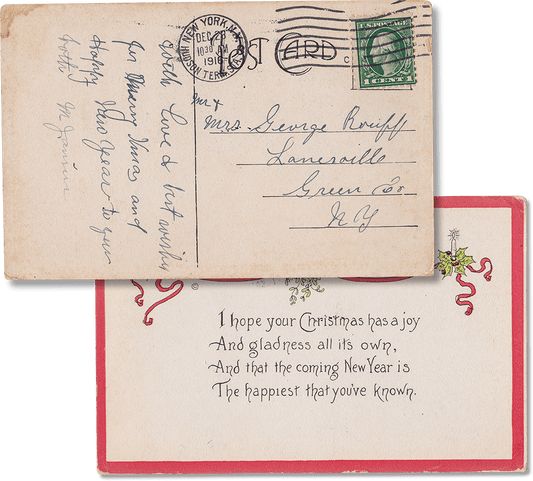 NEW YORK, N.Y.
DEC 23
1030 AM
1916
HUDSON TERM. STA.
POST CARD
U.S. POSTAGE
1 CENT 1
Mr &
Mrs. George Rouiff
Lanesville
Green Co.
N Y
With love & best wishes
for Merry Xmas and
Happy New Year to you
both
I hope your Christmas has a joy
And gladness all it's own,
And that the coming New Year is
The happiest that you've known.